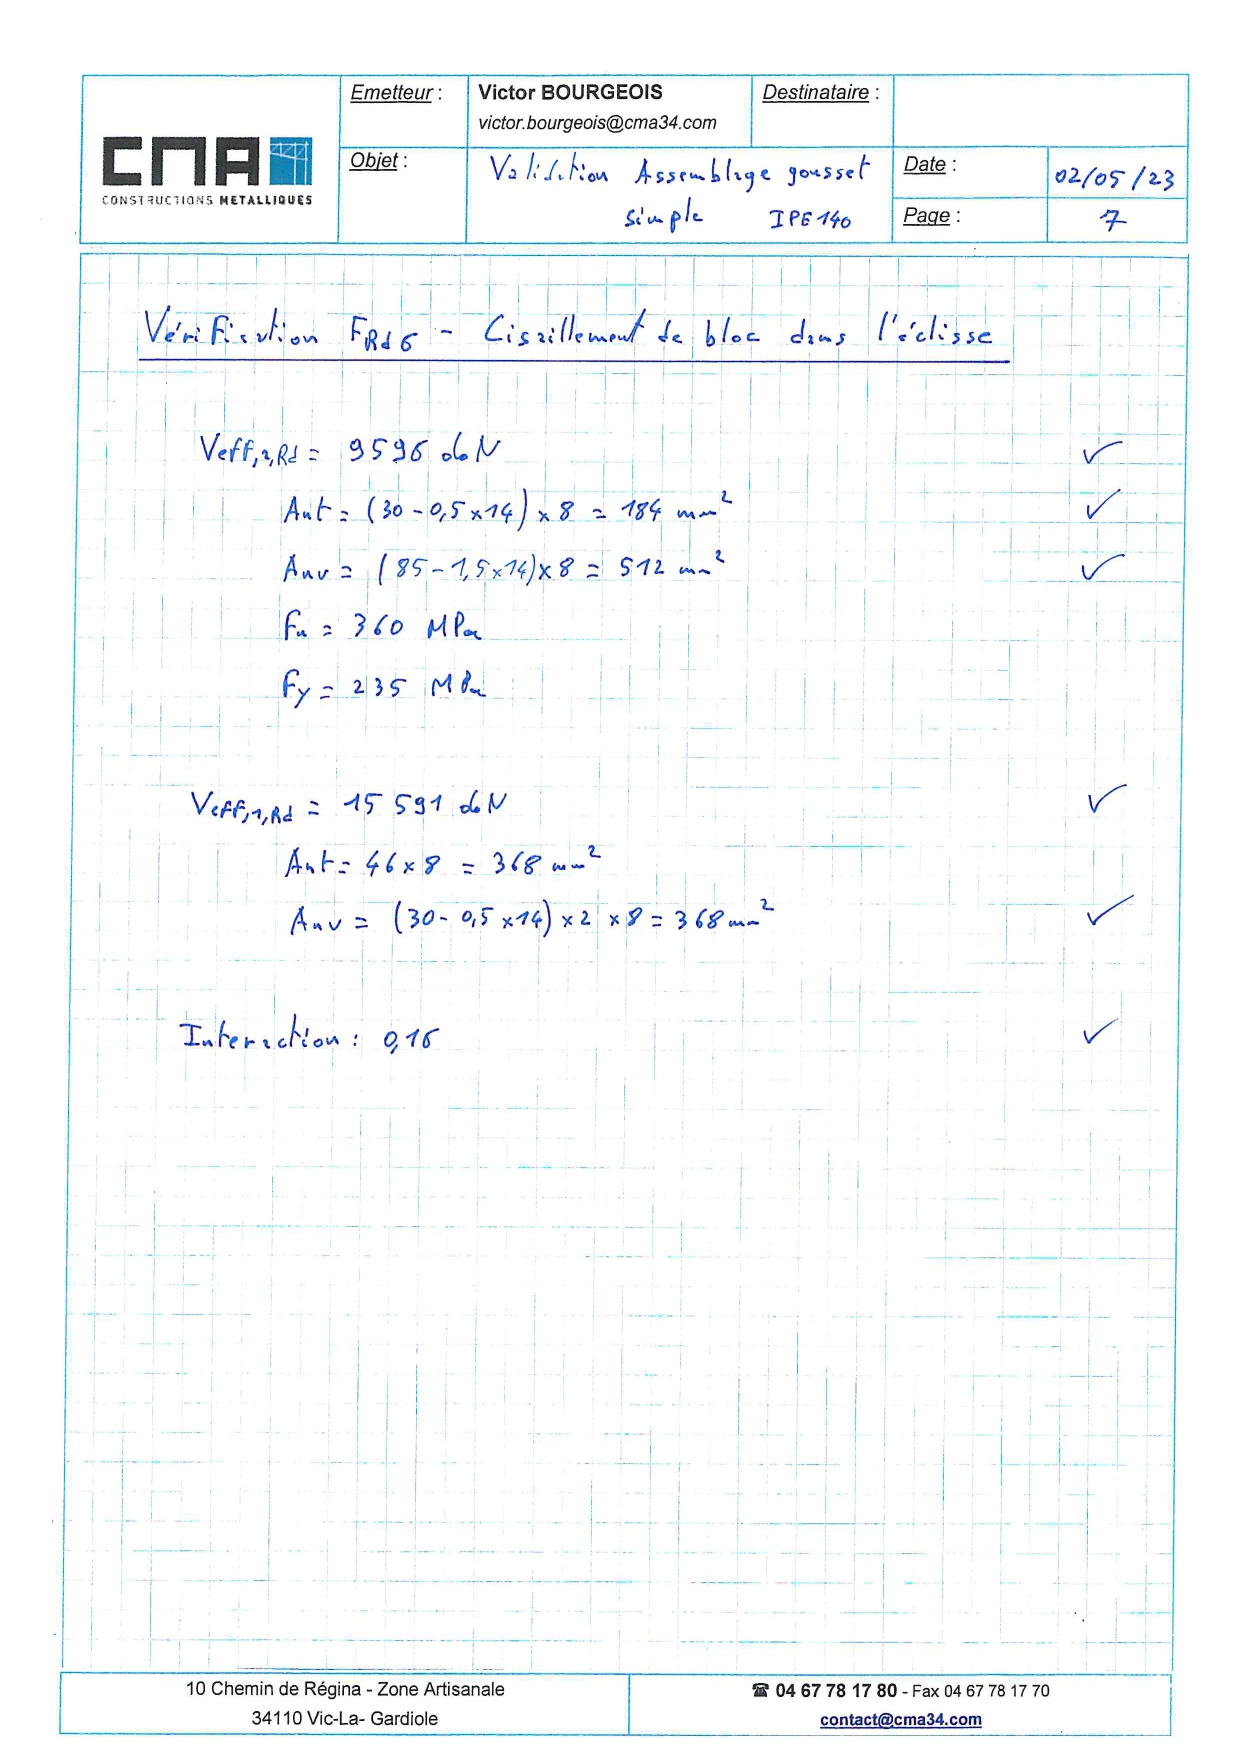 CMA
CONSTRUCTIONS METALLIQUES
Emetteur :
Victor BOURGEOIS
victor.bourgeois@cma34.com
Destinataire :
Objet :
Validation Assemblage gousset
simple IPE 140
Date :
02/05/23
Page :
7
Vérification FRd6 - Cisaillement de bloc dans l'éclisse
Veff,2,Rd = 9596 daN ✓
Ant = (30-0,5x14) x 8 = 184 mm² ✓
Anv = (85-1,5x14)x8 = 512 mm² ✓
Fu = 360 MPa
Fy = 235 MPa
Veff,1,Rd = 15 591 daN ✓
Ant = 46x8 = 368 mm²
Anv = (30-0,5x14) x 2 x 8 = 368 mm² ✓
Interaction : 0,16 ✓
10 Chemin de Régina - Zone Artisanale
34110 Vic-La- Gardiole
☎ 04 67 78 17 80 - Fax 04 67 78 17 70
contact@cma34.com